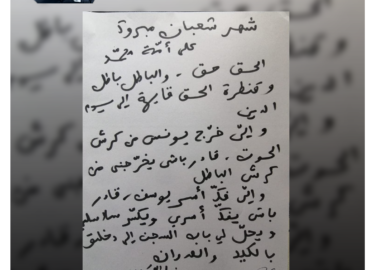 شهر شعبان مبروك
على أمّة محمّد
الحق حق - والباطل باطل
و قنطرة الحق قايمة إلى يوم
الدين
و إلّي خرّج يونس من كرش
الحوت . قادر باش يخرّجني من
كرش الباطل
و إلّي فكّ أسر يوسف . قادر
باش يفكّ أسري ويكسّر سلاسلي
ويحلّ لي باب السجن إلي دخلتو
بالكيد والعدوان